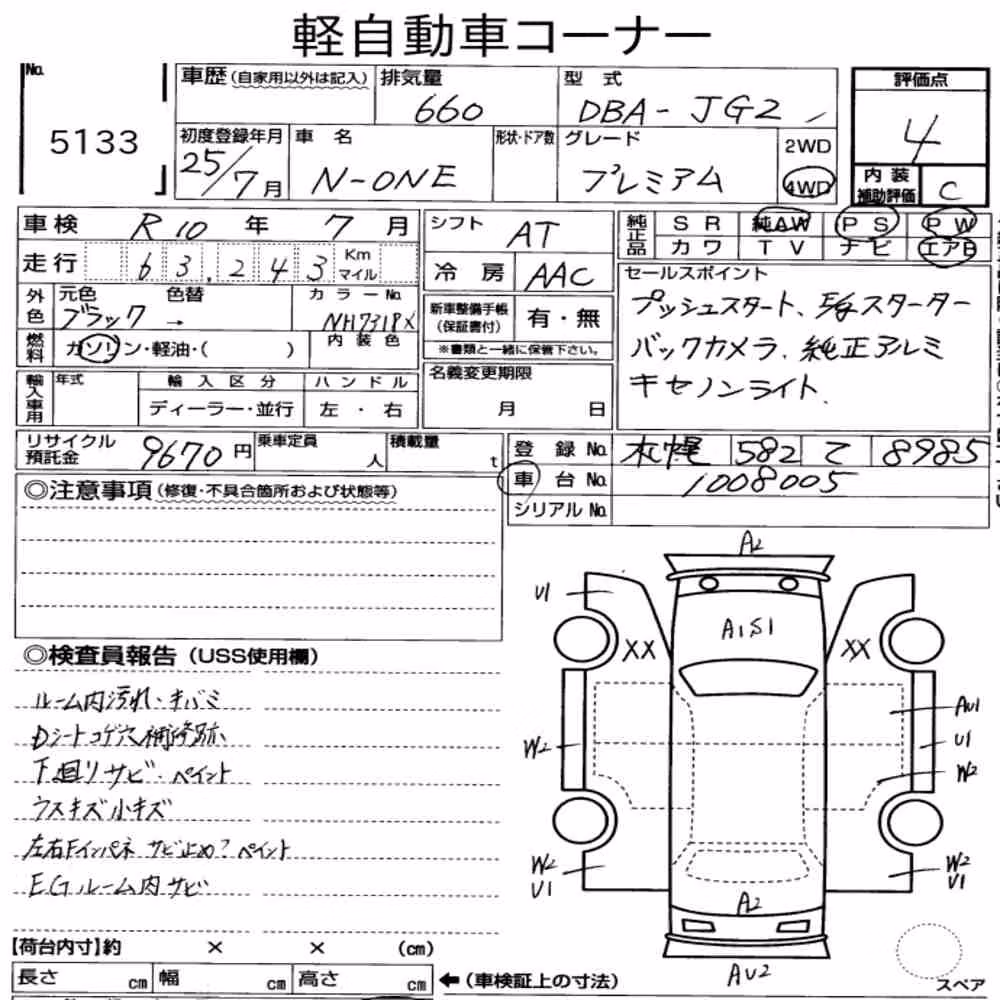 軽自動車コーナー
No. 5133
車歴(自家用以外は記入) 排気量 660 型 式 DBA-JG2
評価点 4
初度登録年月 25/7月 車 名 N-ONE 形状・ドア数 グレード プレミアム 2WD 4WD
内 装 補助評価 C
車検 R10 年 7 月
走行 63,243 Km マイル
外色 元色 ブラック → 色替 カラーNo. NH731PX
燃料 ガソリン・軽油・( ) 内 装 色
輸入車用 年式 輸 入 区 分 ハ ン ド ル
ディーラー・並行 左 ・ 右
シフト AT
冷 房 AAC
新車整備手帳(保証書付) 有・無
※書類と一緒に保管下さい。
名義変更期限
月 日
純正品 S R 純AW P S P W
カワ T V ナビ エアB
セールスポイント
プッシュスタート、E/gスターター
バックカメラ、純正アルミ
キセノンライト.
リサイクル預託金 9670 円 乗車定員 人 積載量 t
登 録 No. 札幌 582 て 8985
車 台 No. 1008005
シリアル No.
◎注意事項(修復・不具合箇所および状態等)
◎検査員報告(USS使用欄)
ルーム内汚れ・キバミ
Dシートコゲ穴補修跡
下廻りサビ・ペイント
ウスキズ小キズ
左右Fインパネ サビ止め?ペイント
EGルーム内サビ
A2
U1
A1S1
XX
XX
AU1
U1
W2
W2
W2
U1
W2
U1
A2
AU2
スペア
【荷台内寸】約 × × (cm)
長さ cm 幅 cm 高さ cm ←(車検証上の寸法)